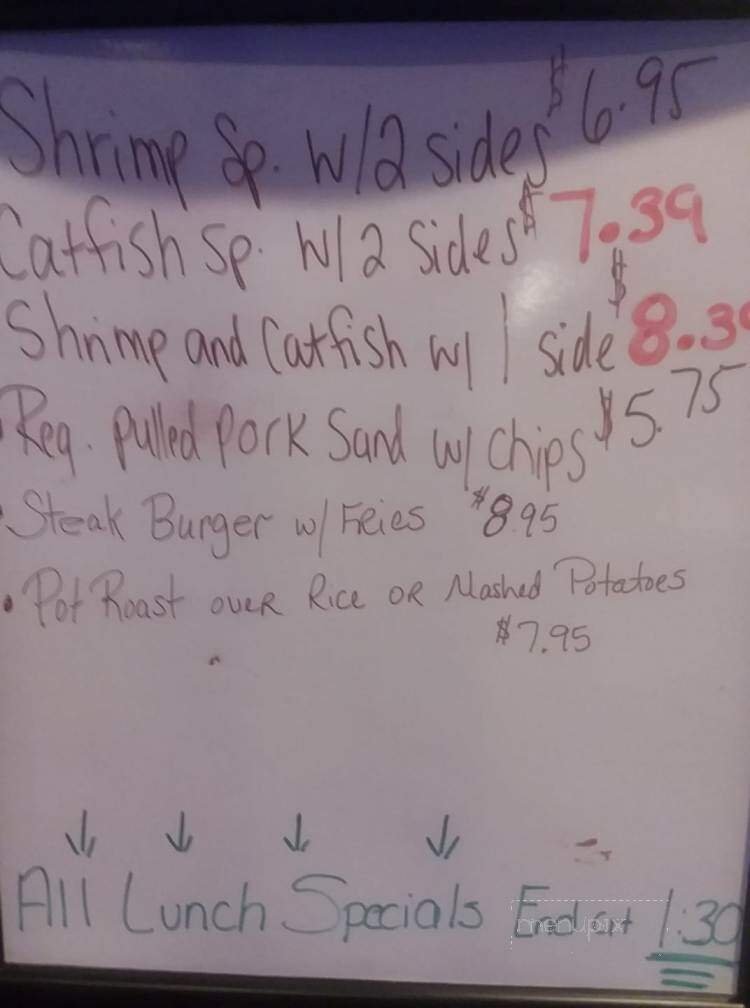 Shrimp Sp. w/2 sides $6.95
Catfish Sp. w/2 Sides $7.39
Shrimp and Catfish w/ 1 side $8.39
Reg. pulled pork Sand w/ chips $5.75
• Steak Burger w/ Fries $8.95
• Pot Roast over Rice or Mashed Potatoes
$7.95
All Lunch Specials End at 1:30
menupix